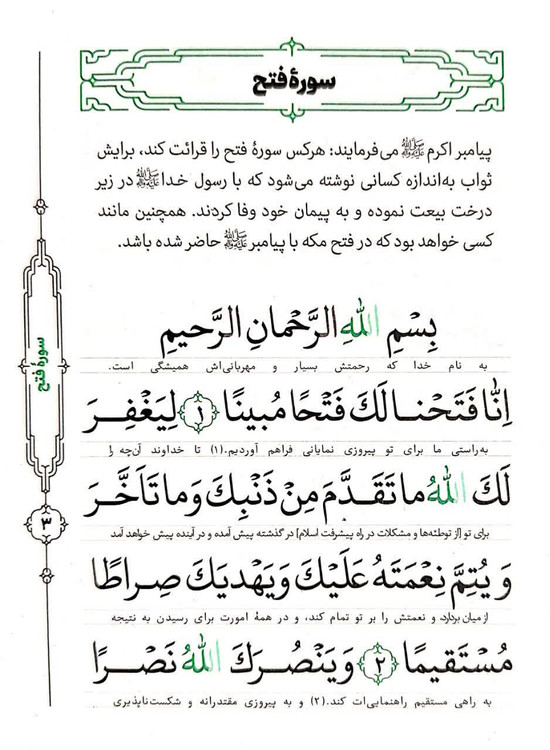 سورهٔ فتح
پیامبر اکرم ﷺ می‌فرمایند: هرکس سورهٔ فتح را قرائت کند، برایش
ثواب به‌اندازه کسانی نوشته می‌شود که با رسول خدا ﷺ در زیر
درخت بیعت نموده و به پیمان خود وفا کردند. همچنین مانند
کسی خواهد بود که در فتح مکه با پیامبر ﷺ حاضر شده باشد.
بِسْمِ اللهِ الرَّحْمانِ الرَّحیمِ
به نام خدا که رحمتش بسیار و مهربانی‌اش همیشگی است.
اِنّا فَتَحْنا لَكَ فَتْحًا مُبینًا ﴿۱﴾ لِيَغْفِرَ
به‌راستی ما برای تو پیروزی نمایانی فراهم آوردیم.(۱) تا خداوند آن‌چه را
لَكَ اللهُ ما تَقَدَّمَ مِنْ ذَنْبِكَ وَ ما تَاَخَّرَ
برای تو [از توطئه‌ها و مشکلات در راه پیشرفت اسلام] در گذشته پیش آمده و در آینده پیش خواهد آمد
وَ يُتِمَّ نِعْمَتَهُ عَلَيْكَ وَ يَهْدِيَكَ صِراطًا
از میان بردارد، و نعمتش را بر تو تمام کند، و در همهٔ امورت برای رسیدن به نتیجه
مُسْتَقیمًا ﴿۲﴾ وَ يَنْصُرَكَ اللهُ نَصْرًا
به راهی مستقیم راهنمایی‌ات کند.(۲) و به پیروزی مقتدرانه و شکست‌ناپذیری
سورهٔ فتح
۳